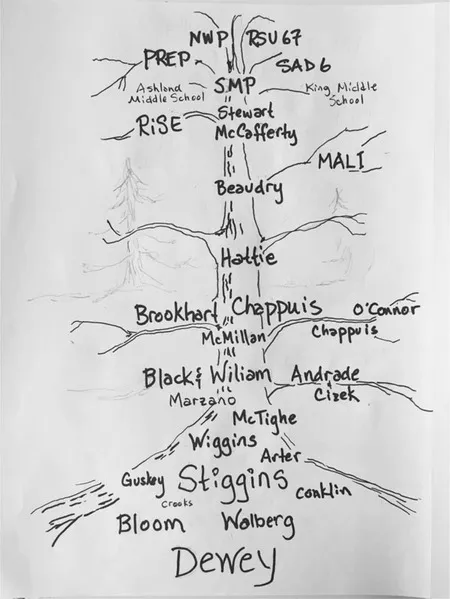 NWP RSU 67
PREP SAD 6
SMP
Ashland
Middle School
King Middle
School
Stewart
RiSE McCafferty
MALI
Beaudry
Hattie
Brookhart Chappuis O'Connor
McMillan Chappuis
Black & Wiliam Andrade
Marzano Cizek
McTighe
Wiggins
Arter
Guskey Stiggins Conklin
Crooks
Bloom Wolberg
Dewey